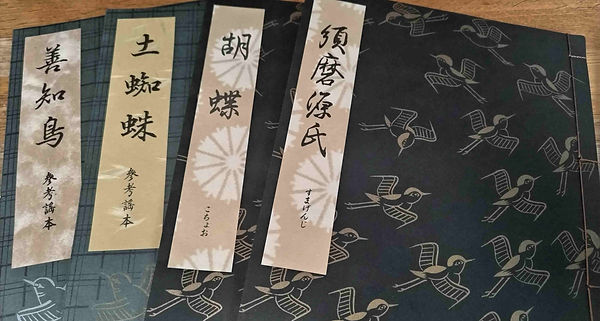 善知鳥
參考謠本
土蜘蛛
參考謠本
胡蝶
こちょお
須磨源氏
すまげんじ